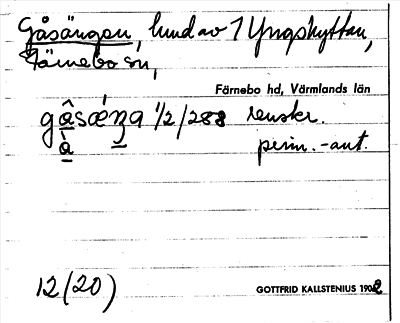 Gåsängen, lund av 1 Yngshyttan,
Färnebo sn,
Färnebo hd, Värmlands län
gâsǽŋa 1/2/288 renskr.
à perm.-ant.
12(20)
GOTTFRID KALLSTENIUS 1902